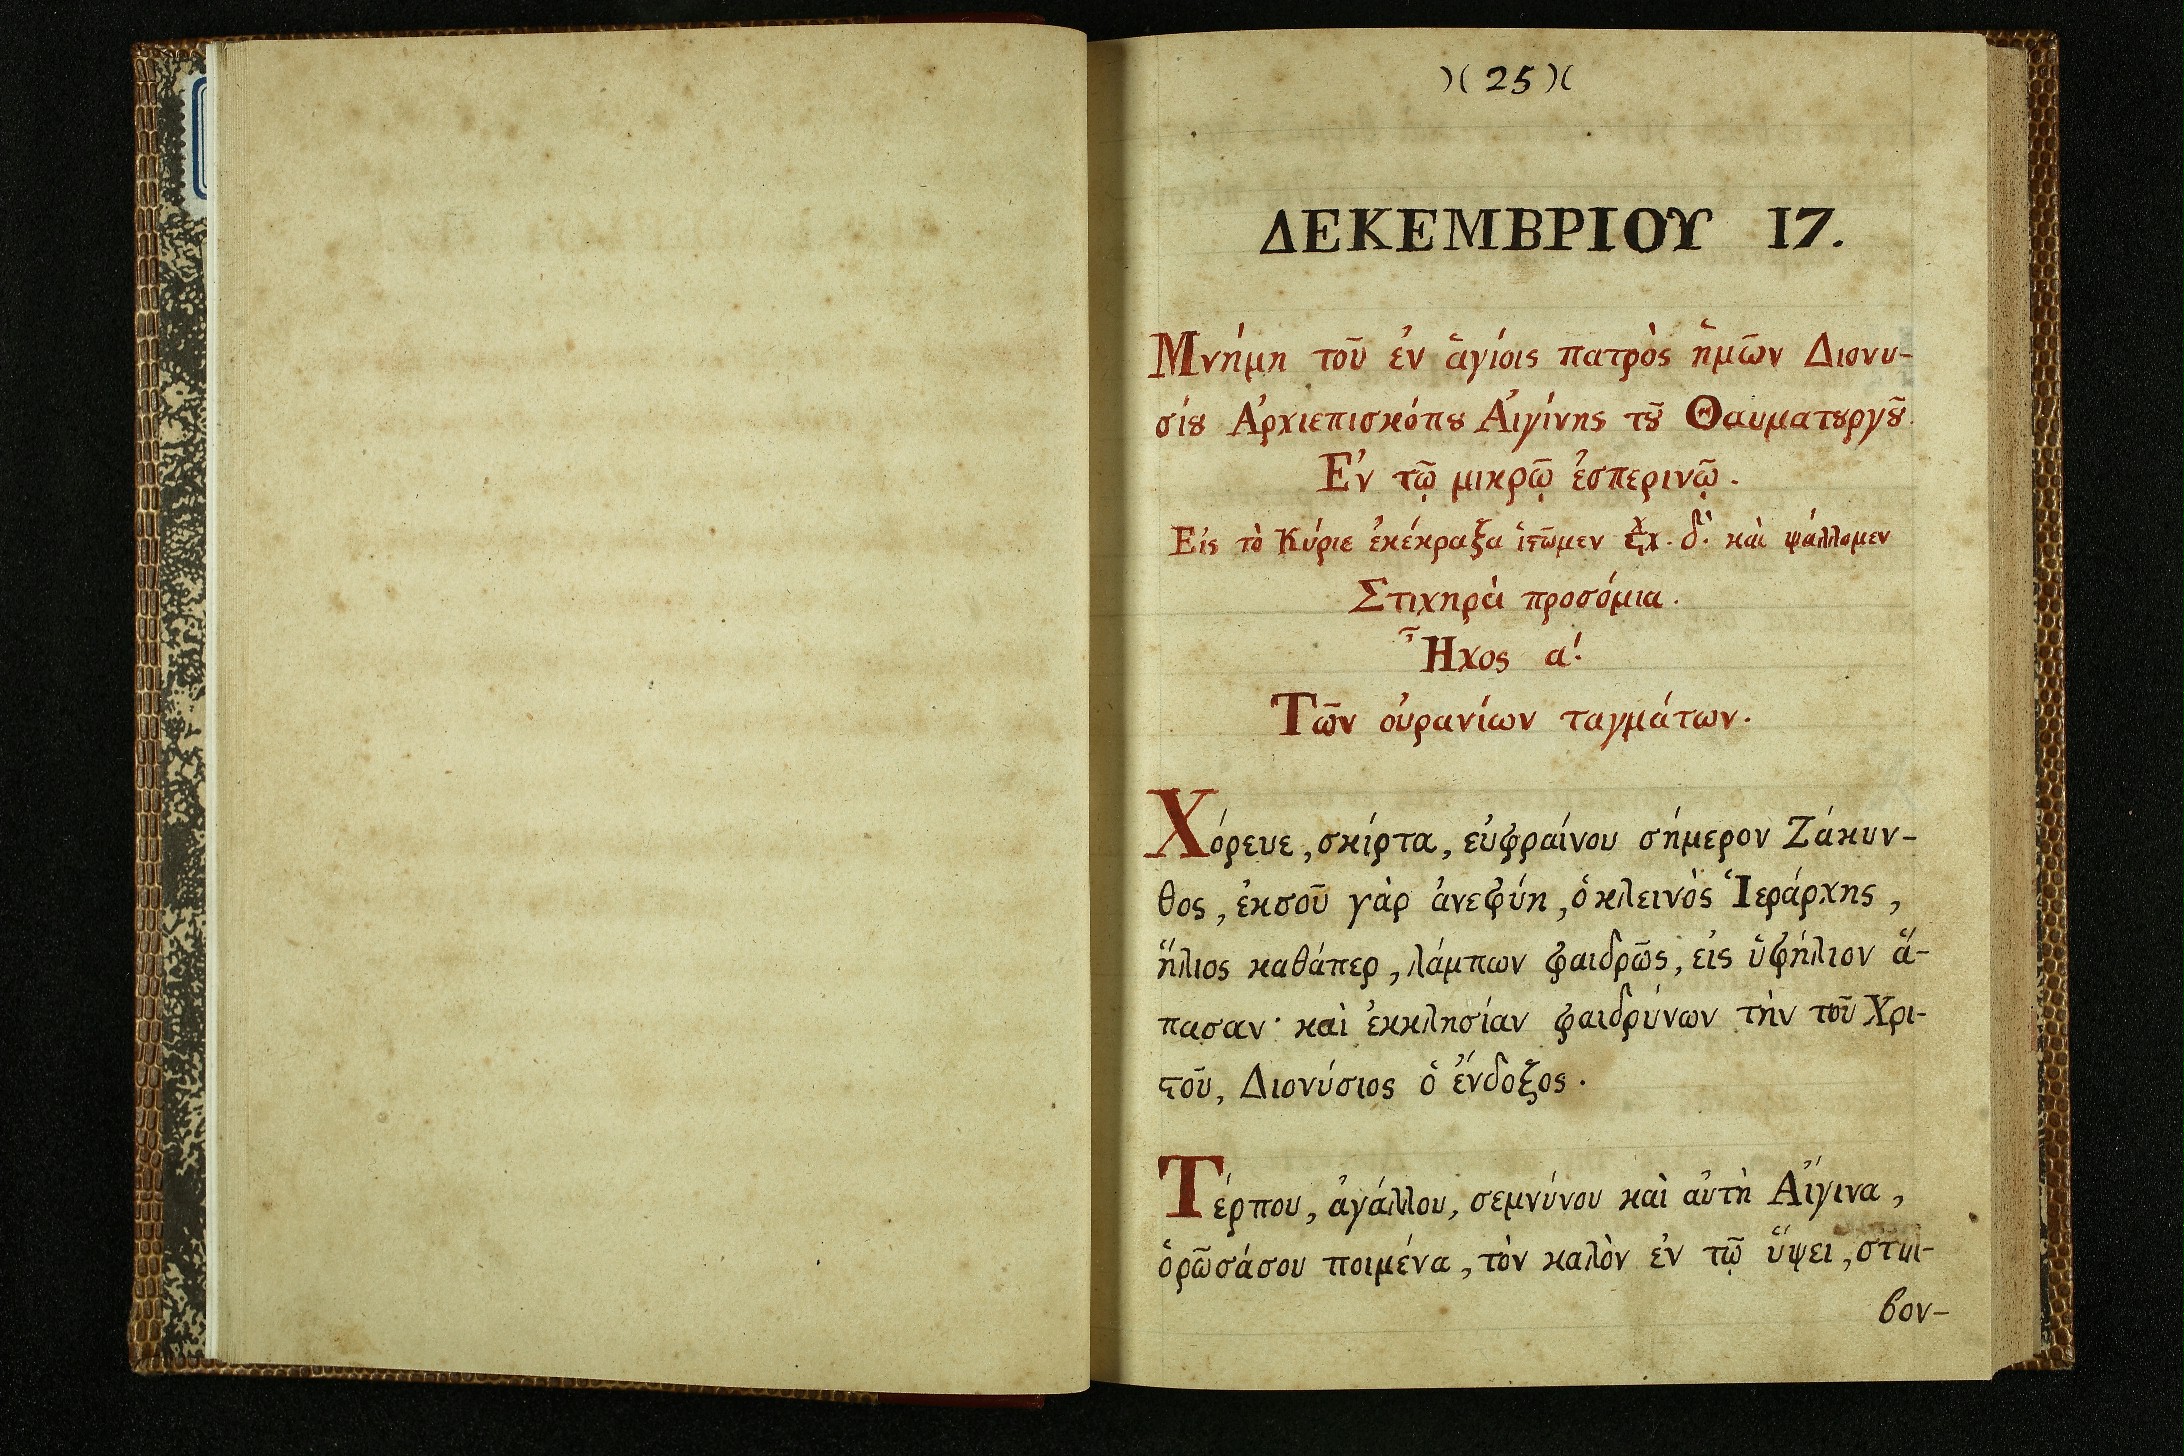 )( 25 )(
ΔΕΚΕΜΒΡΙΟΥ 17.
Μνήμη τοῦ ἐν ἁγίοις πατρὸς ἡμῶν Διονυ-
σίȣ Ἀρχιεπισκόπȣ Αἰγίνης τȣ͂ Θαυματȣργȣ͂.
Ἐν τῷ μικρῷ ἑσπερινῷ.
Εἰς τὸ Κύριε ἐκέκραξα ἱϛῶμεν ϛχ. δ'. καὶ ψάλλομεν
Στιχηρὰ προσόμια.
Ἦχος α'.
Τῶν οὐρανίων ταγμάτων.
Χόρευε, σκίρτα, εὐφραίνου σήμερον Ζάκυν-
θος, ἐκσοῦ γὰρ ἀνεφύη, ὁ κλεινὸς Ἱεράρχης,
ἥλιος καθάπερ, λάμπων φαιδρῶς, εἰς ὑφήλιον ἅ-
πασαν· καὶ ἐκκλησίαν φαιδρύνων τὴν τοῦ Χρι-
ϛοῦ, Διονύσιος ὁ ἔνδοξος.
Τέρπου, ἀγάλλου, σεμνύνου καὶ αὐτὴ Αἴγινα,
ὁρῶσάσου ποιμένα, τὸν καλὸν ἐν τῷ ὕψει,
βον-